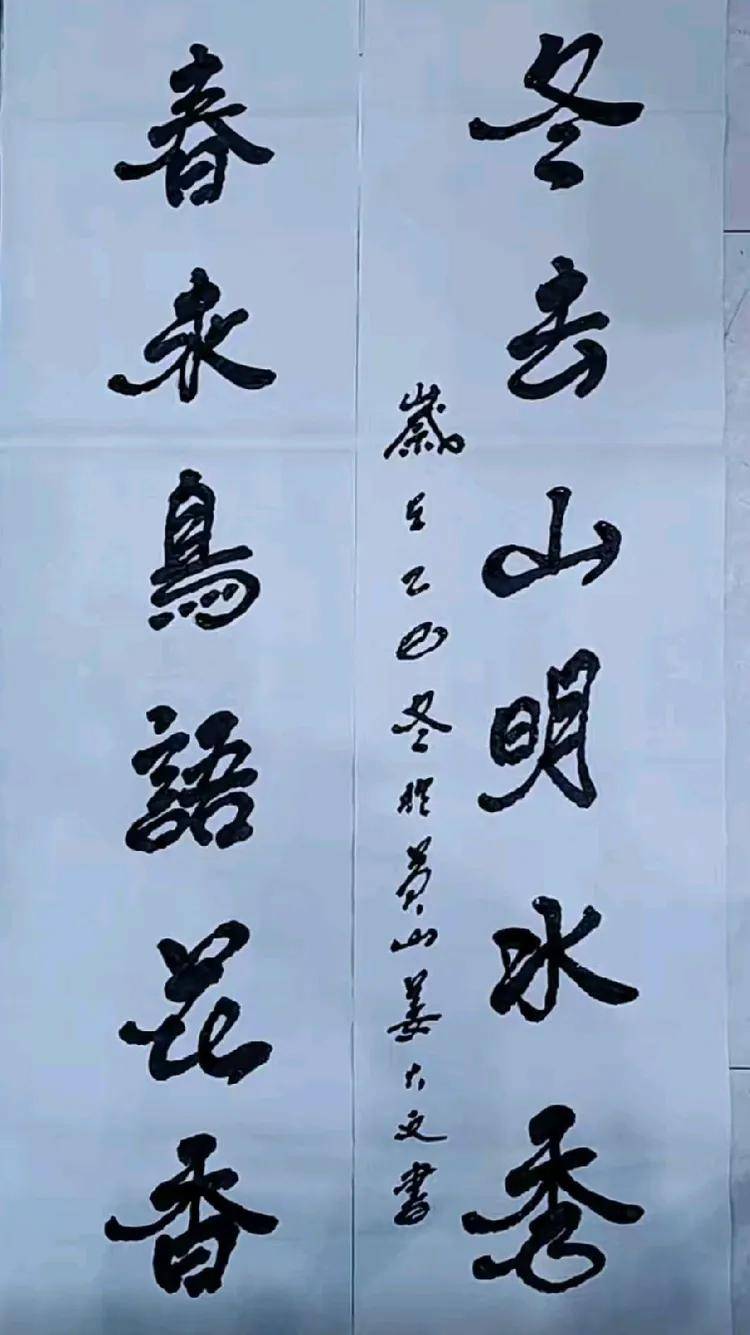 冬去山明水秀
歲在乙巳冬於黄山姜大文書
春来鳥語花香